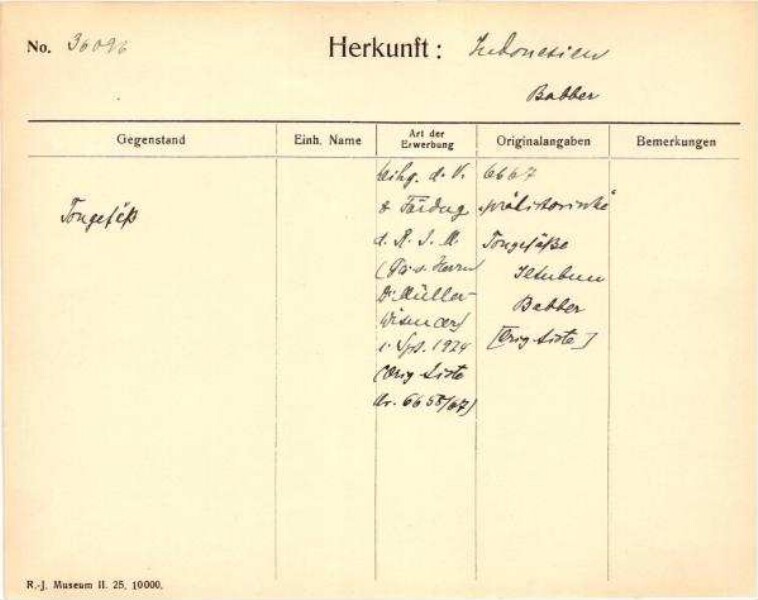 No. 36096 Herkunft: Indonesien
Babber
Gegenstand Einh. Name Art der Erwerbung Originalangaben Bemerkungen
Tongefäß
Leihg. d. V.
z. Förderg
d. R. J. M.
Herrn
Dr Müller-
Wismar)
Sept. 1924
(Orig Liste
Nr. 6658/67)
6667
„prähistorische"
Tongefäße
Iltubun
Babber
[Orig Liste]
R.-J. Museum II. 25. 10000.